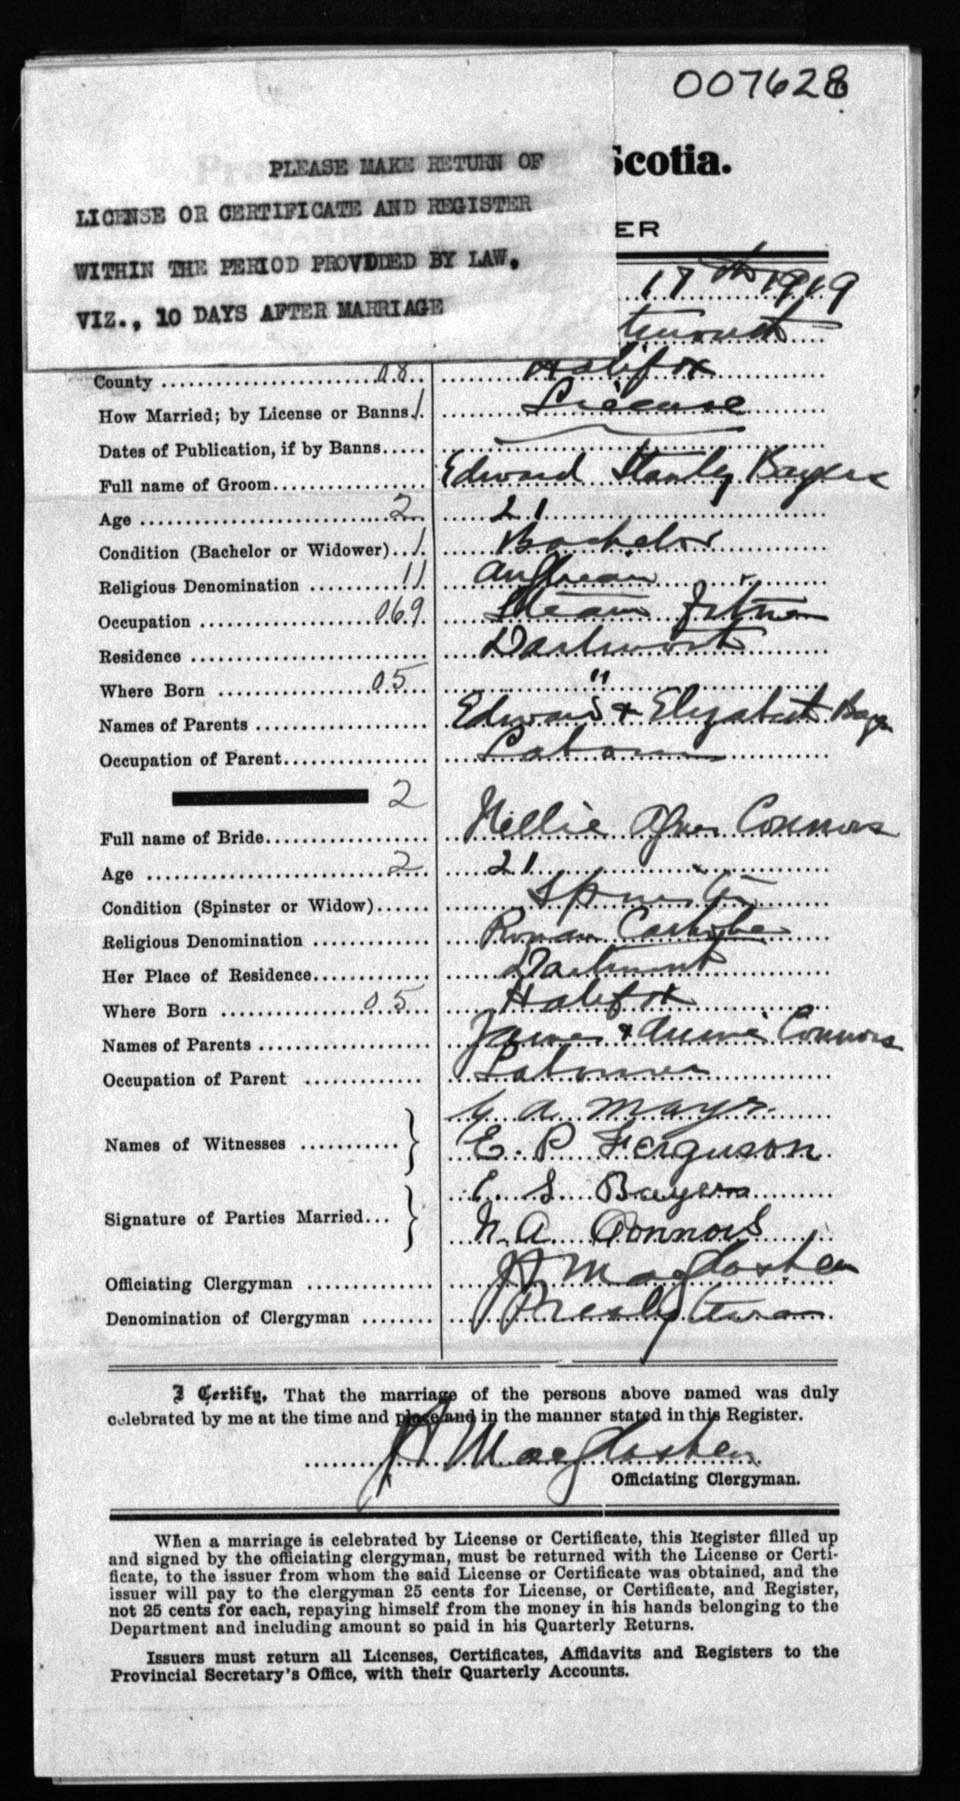 007628
PLEASE MAKE RETURN OF
LICENSE OR CERTIFICATE AND REGISTER
WITHIN THE PERIOD PROVIDED BY LAW,
VIZ., 10 DAYS AFTER MARRIAGE
Scotia.
ER
17th 1919
tmouth
County 08 Halifax
How Married; by License or Banns. 1 License
Dates of Publication, if by Banns
Full name of Groom Edward Stanley Bayers
Age 2 21
Condition (Bachelor or Widower) 1 Bachelor
Religious Denomination 11 Anglican
Occupation 069 Steam Fitter
Residence Dartmouth
Where Born 05 "
Names of Parents Edward + Elizabeth Bayers
Occupation of Parent Labourer
2
Full name of Bride Nellie Agnes Connors
Age 2 21
Condition (Spinster or Widow) Spinster
Religious Denomination Roman Catholic
Her Place of Residence Dartmouth
Where Born 05 Halifax
Names of Parents James + Annie Connors
Occupation of Parent Labourer
Names of Witnesses A. Mayr
E. P. Ferguson
Signature of Parties Married E. S. Bayers
N. A. Connors
Officiating Clergyman Macglashen
Denomination of Clergyman Presbyterian
I Certify, That the marriage of the persons above named was duly
celebrated by me at the time and place and in the manner stated in this Register.
Macglashen
Officiating Clergyman.
When a marriage is celebrated by License or Certificate, this Register filled up
and signed by the officiating clergyman, must be returned with the License or Certi-
ficate, to the issuer from whom the said License or Certificate was obtained, and the
issuer will pay to the clergyman 25 cents for License, or Certificate, and Register,
not 25 cents for each, repaying himself from the money in his hands belonging to the
Department and including amount so paid in his Quarterly Returns.
Issuers must return all Licenses, Certificates, Affidavits and Registers to the
Provincial Secretary's Office, with their Quarterly Accounts.